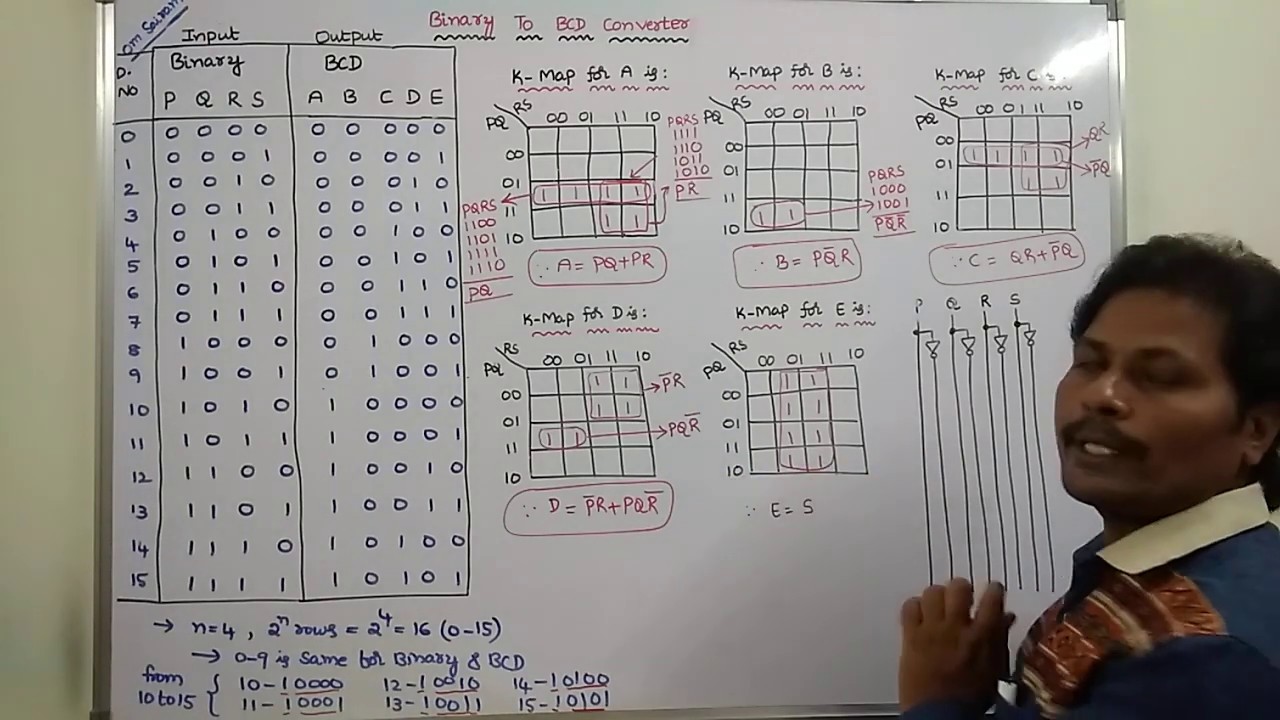 om Sairam
Binary To BCD Converter
Input Output
D. No Binary BCD
P Q R S A B C D E
0 0 0 0 0 0 0 0 0 0
1 0 0 0 1 0 0 0 0 1
2 0 0 1 0 0 0 0 1 0
3 0 0 1 1 0 0 0 1 1
4 0 1 0 0 0 0 1 0 0
5 0 1 0 1 0 0 1 0 1
6 0 1 1 0 0 0 1 1 0
7 0 1 1 1 0 0 1 1 1
8 1 0 0 0 0 1 0 0 0
9 1 0 0 1 0 1 0 0 1
10 1 0 1 0 1 0 0 0 0
11 1 0 1 1 1 0 0 0 1
12 1 1 0 0 1 0 0 1 0
13 1 1 0 1 1 0 0 1 1
14 1 1 1 0 1 0 1 0 0
15 1 1 1 1 1 0 1 0 1
→ n=4, 2ⁿ rows = 2⁴ = 16 (0-15)
→ 0-9 is Same for Binary & BCD
from 10 to 15 { 10-10000 12-10010 14-10100
11-10001 13-10011 15-10101
K-Map for A is:
RS
PQ 00 01 11 10
00
01
11 1 1 1 1
10 1 1
PQRS
1111
1110
1011
1010
PR
PQRS
1100
1101
1111
1110
PQ
∵ A = PQ+PR
K-Map for B is:
RS
PQ 00 01 11 10
00
01
11
10 1 1
PQRS
1000
1001
PQ̅R̅
∵ B = PQ̅R̅
K-Map for C is:
RS
PQ 00 01 11 10
00
01 1 1 1 1
11 1 1
10
QR
P̅Q
∵ C = QR+P̅Q
K-Map for D is:
RS
PQ 00 01 11 10
00 1 1
01 1 1
11 1 1
10
P̅R
PQR̅
∵ D = P̅R+PQR̅
K-Map for E is:
RS
PQ 00 01 11 10
00 1 1
01 1 1
11 1 1
10 1 1
∵ E = S
P Q R S